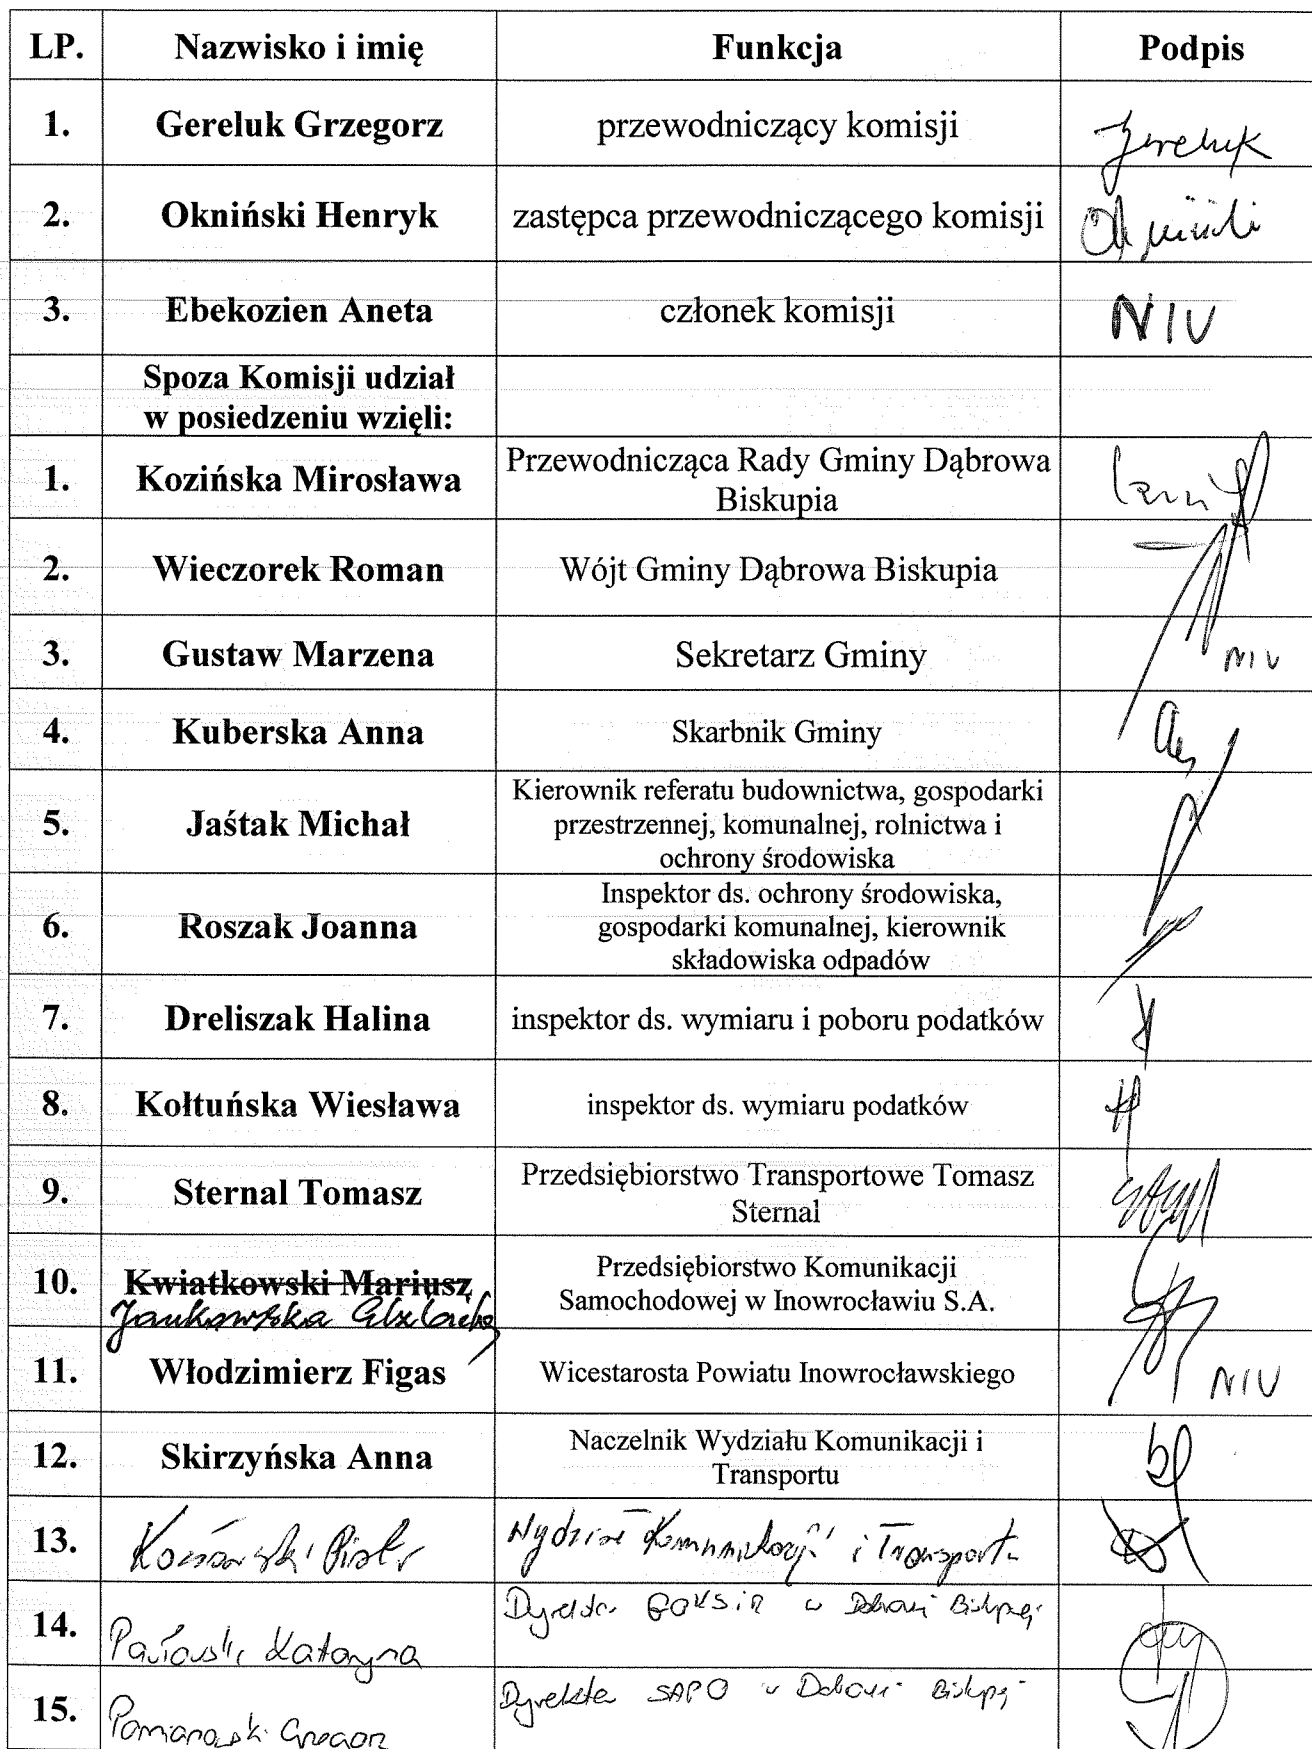 LP. Nazwisko i imię Funkcja Podpis
1. Gereluk Grzegorz przewodniczący komisji Gereluk
2. Okniński Henryk zastępca przewodniczącego komisji Okniński
3. Ebekozien Aneta członek komisji NIU
Spoza Komisji udział
w posiedzeniu wzięli:
1. Kozińska Mirosława Przewodnicząca Rady Gminy Dąbrowa
Biskupia
2. Wieczorek Roman Wójt Gminy Dąbrowa Biskupia
3. Gustaw Marzena Sekretarz Gminy NIU
4. Kuberska Anna Skarbnik Gminy
5. Jaśtak Michał Kierownik referatu budownictwa, gospodarki
przestrzennej, komunalnej, rolnictwa i
ochrony środowiska
6. Roszak Joanna Inspektor ds. ochrony środowiska,
gospodarki komunalnej, kierownik
składowiska odpadów
7. Dreliszak Halina inspektor ds. wymiaru i poboru podatków
8. Kołtuńska Wiesława inspektor ds. wymiaru podatków
9. Sternal Tomasz Przedsiębiorstwo Transportowe Tomasz
Sternal
10. Kwiatkowski Mariusz Przedsiębiorstwo Komunikacji
Samochodowej w Inowrocławiu S.A.
Jankowska
11. Włodzimierz Figas Wicestarosta Powiatu Inowrocławskiego NIU
12. Skirzyńska Anna Naczelnik Wydziału Komunikacji i
Transportu
13. Piotr Wydział Komunikacji i Transportu
14. Katarzyna Dyrektor GOKSiR w
15. Dyrektor SAPO w